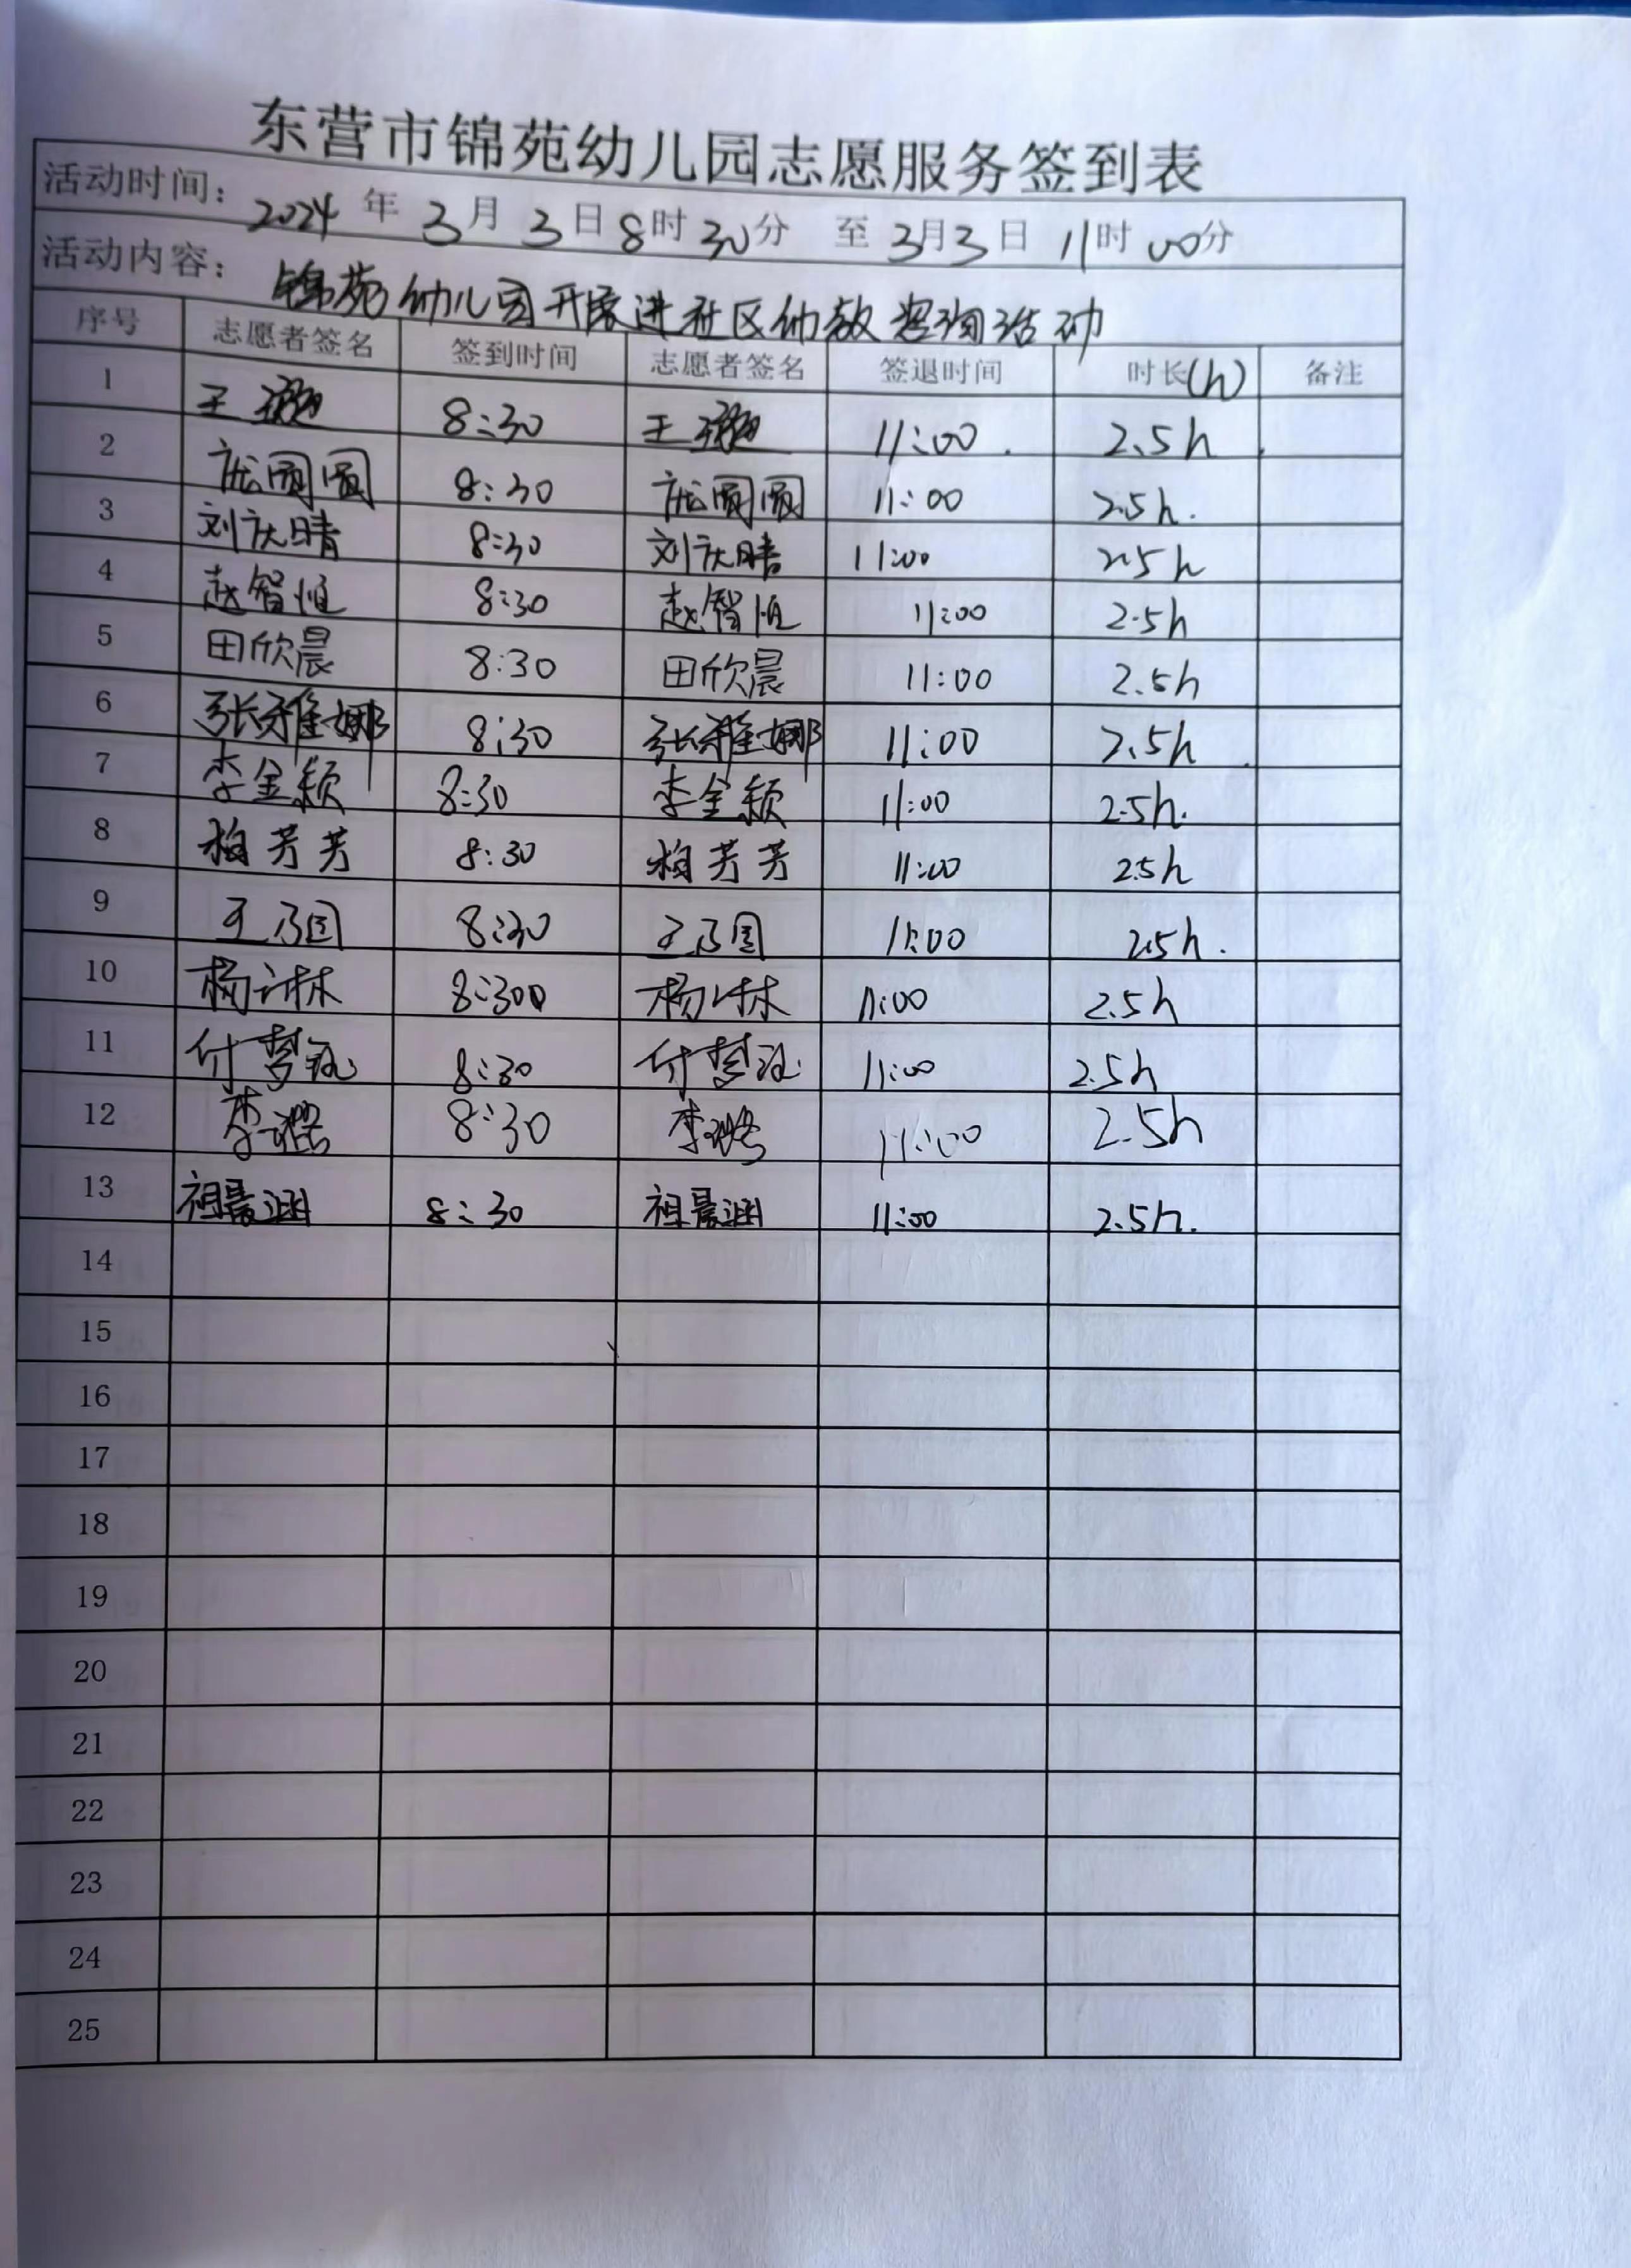 东营市锦苑幼儿园志愿服务签到表
活动时间：2024年3月3日8时30分 至3月3日11时00分
活动内容：锦苑幼儿园开展进社区幼教咨询活动
序号 志愿者签名 签到时间 志愿者签名 签退时间 时长(h) 备注
1 王 8:30 王 11:00 2.5h
2 庞圆圆 8:30 庞圆圆 11:00 2.5h.
3 刘庆晴 8:30 刘庆晴 11:00 2.5h
4 赵智恒 8:30 赵智恒 11:00 2.5h
5 田欣晨 8:30 田欣晨 11:00 2.5h
6 张雅娜 8:30 张雅娜 11:00 2.5h
7 李金颖 8:30 李金颖 11:00 2.5h.
8 芳芳 8:30 芳芳 11:00 2.5h
9 王乃国 8:30 王乃国 11:00 2.5h.
10 杨 8:300 杨 11:00 2.5h
11 付梦 8:30 付梦 11:00 2.5h
12 李璐 8:30 李璐 11:00 2.5h
13 祖晨涵 8:30 祖晨涵 11:00 2.5h.
14
15
16
17
18
19
20
21
22
23
24
25